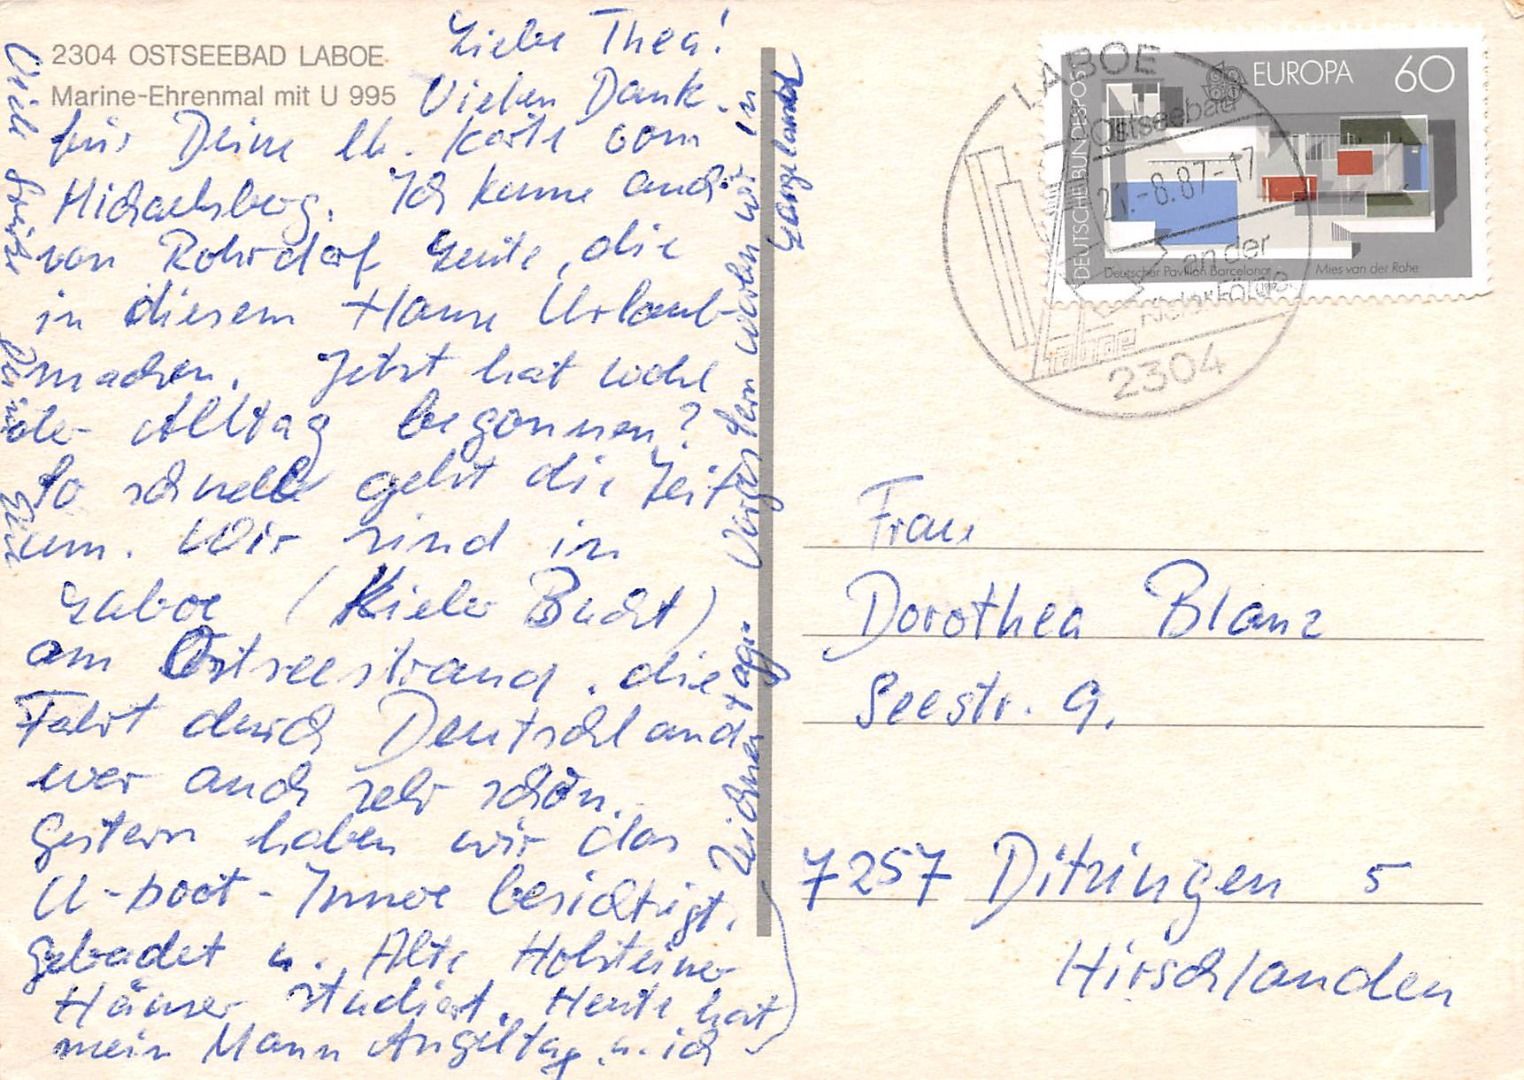 2304 OSTSEEBAD LABOE
Marine-Ehrenmal mit U 995
Liebe Thea!
Vielen Dank
für Deine lb. Karte vom
Michaelsberg. Ich kenne auch
von Rohrdorf Leute, die
in diesem Hause Urlaub
machen. Jetzt hat wohl
der Alltag begonnen?
So schnell geht die Zeit
um. Wir sind in
Laboe (Kieler Bucht)
am Ostseestrand. die
Fahrt durch Deutschland
war auch sehr schön.
Gestern haben wir das
U-boot-Innere besichtigt,
gebadet u. Alte Holsteiner
Häuser studiert. Heute hat
mein Mann Angeltag u. ich
Zeichnertage. Vorgestern waren wir in
Langeland
Viele Grüße
Deine
LABOE
Ostseebad
21.-8.87-17
an der
Kieler Förde
2304
DEUTSCHE BUNDESPOST
EUROPA 60
Deutscher Pavillon Barcelona
Mies van der Rohe
Frau
Dorothea Blanz
Seestr. 9.
7257 Ditzingen 5
Hirschlanden